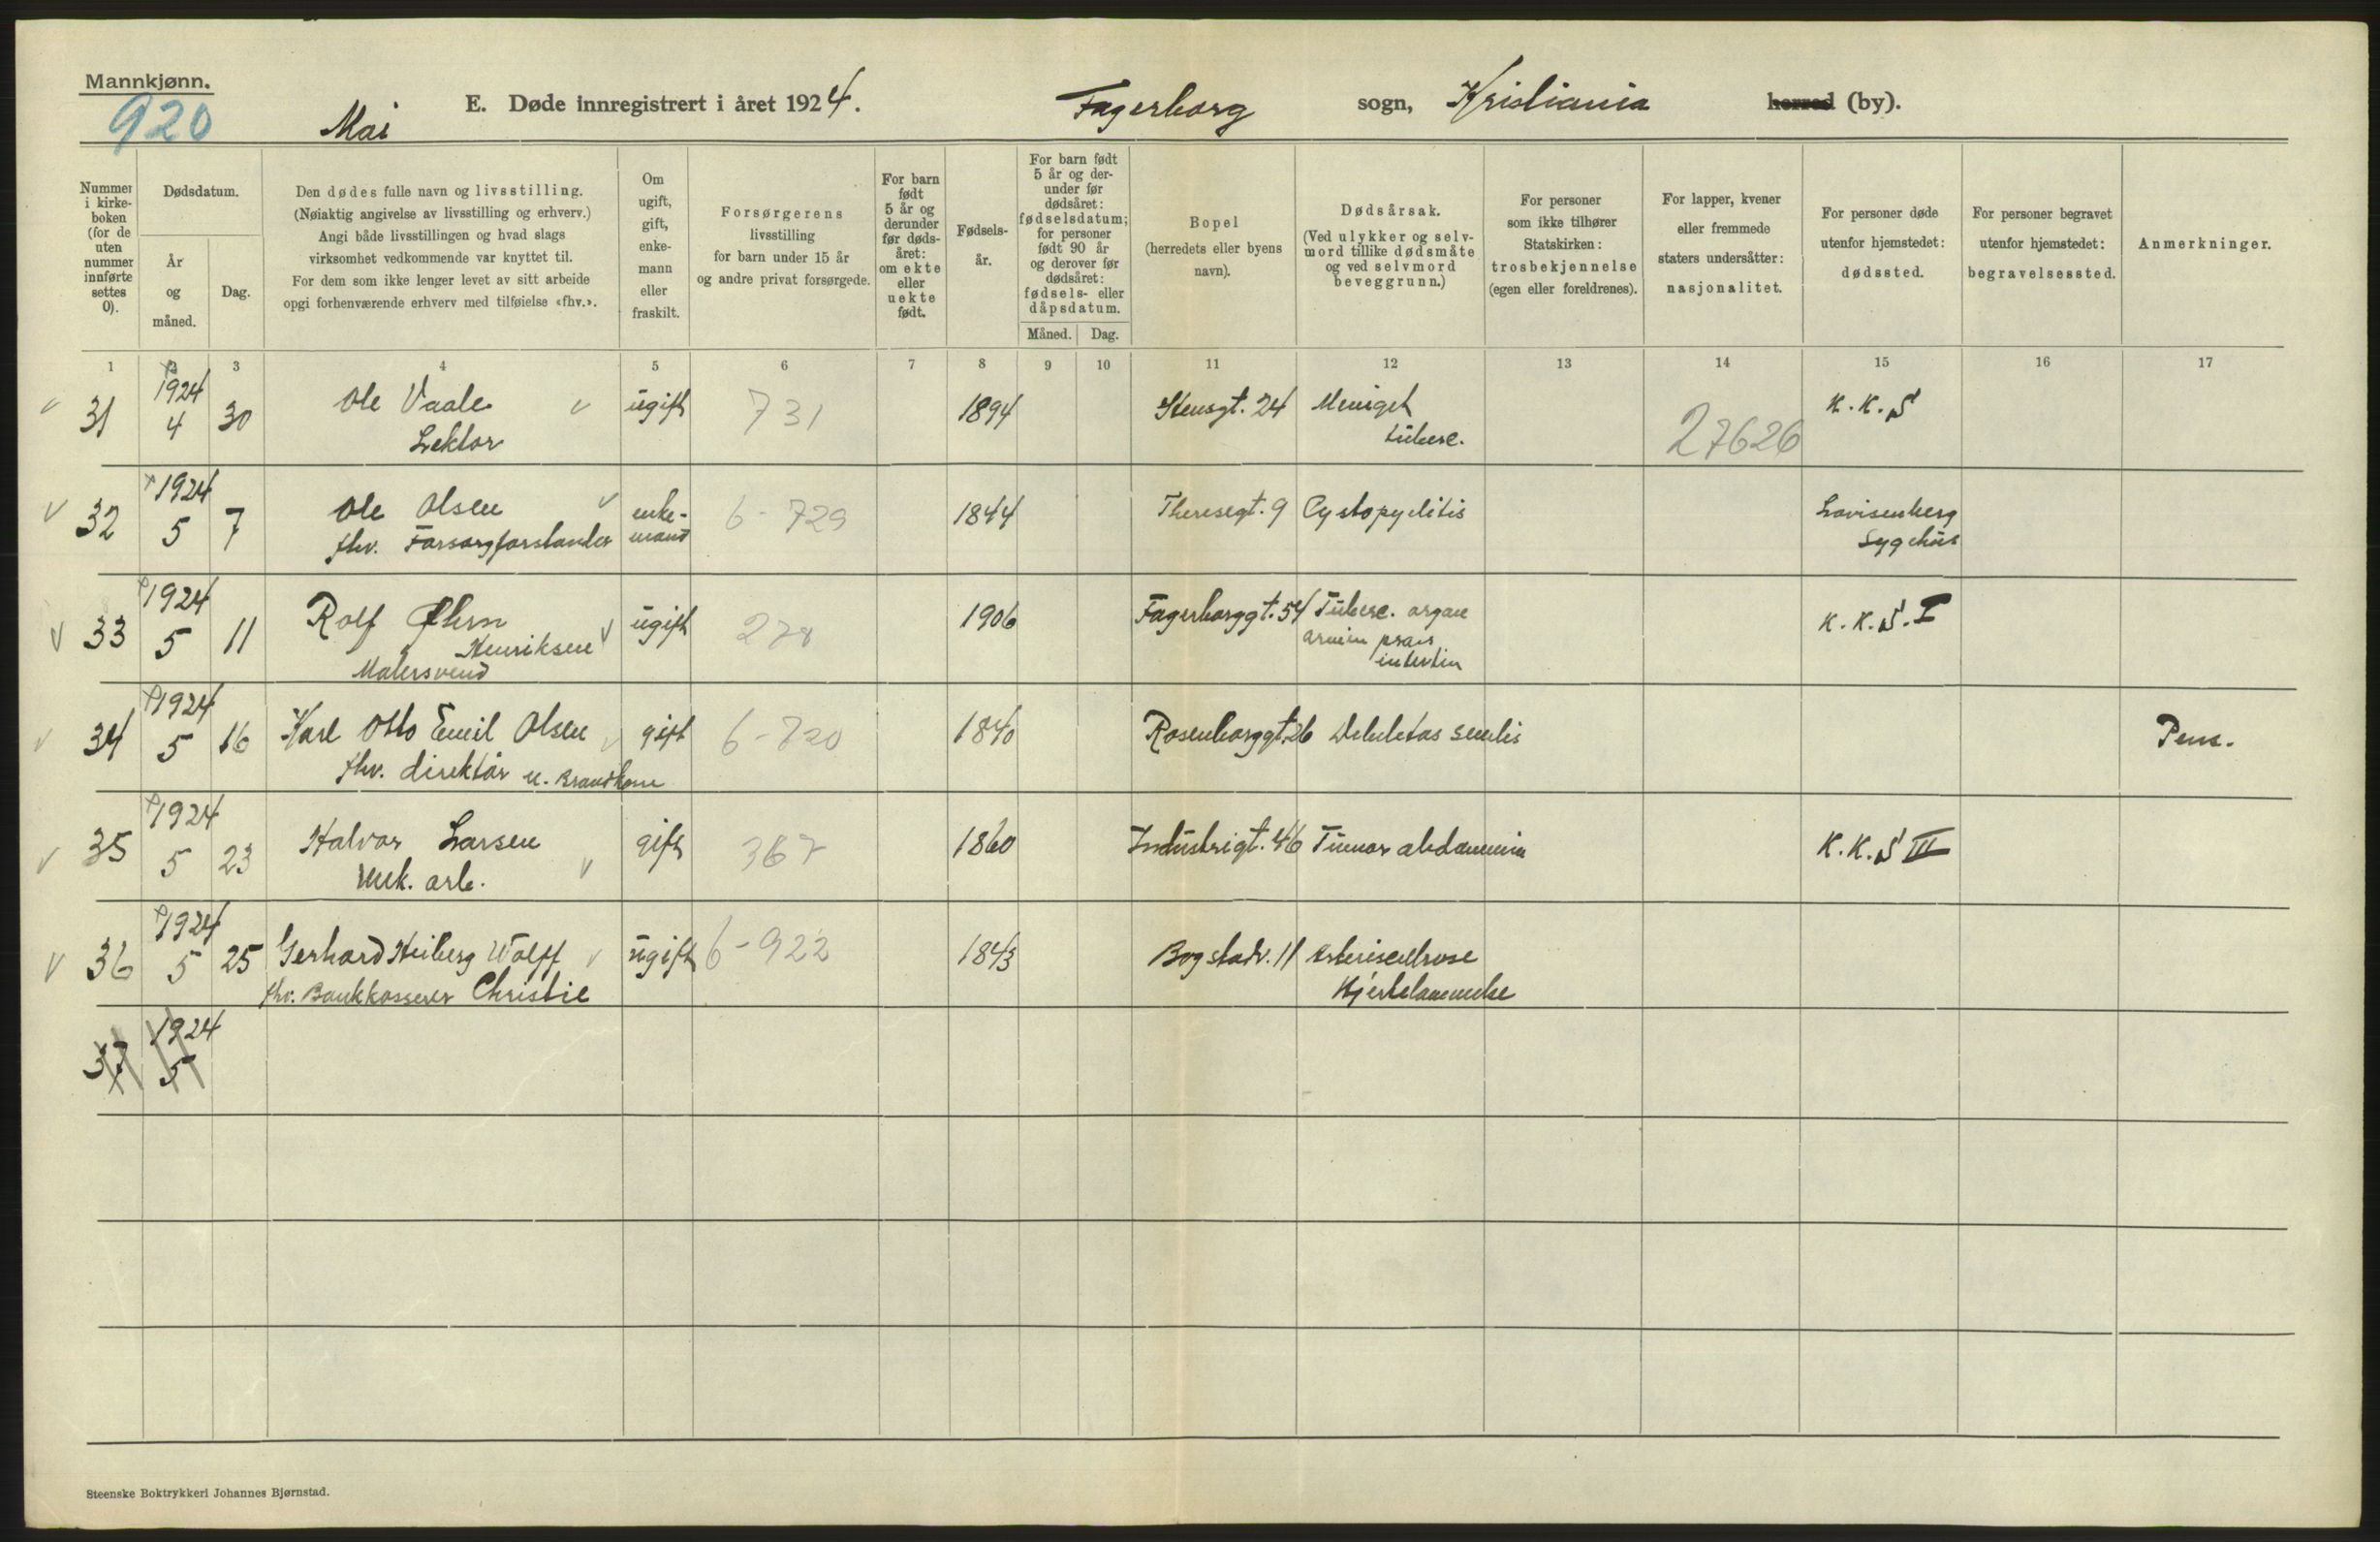 Mannkjønn.
920
Mai
E. Døde innregistrert i året 1924.
Fagerborg sogn, Kristiania herred (by).
Nummer i kirke-boken (for de uten nummer innførte settes 0).
Dødsdatum.
År og måned.
Dag.
Den dødes fulle navn og livsstilling.
(Nøiaktig angivelse av livsstilling og erhverv.)
Angi både livsstillingen og hvad slags
virksomhet vedkommende var knyttet til.
For dem som ikke lenger levet av sitt arbeide
opgi forhenværende erhverv med tilføielse «fhv.».
Om ugift, gift, enke-mann eller fraskilt.
Forsørgerens
livsstilling
for barn under 15 år
og andre privat forsørgede.
For barn født 5 år og derunder før døds-året: om ekte eller uekte født.
Fødsels-år.
For barn født 5 år og der-under før dødsåret: fødselsdatum; for personer født 90 år og derover før dødsåret: fødsels- eller dåpsdatum.
Måned.
Dag.
Bopel
(herredets eller byens
navn).
Dødsårsak.
(Ved ulykker og selv-
mord tillike dødsmåte
og ved selvmord
beveggrunn.)
For personer
som ikke tilhører
Statskirken:
trosbekjennelse
(egen eller foreldrenes).
For lapper, kvener
eller fremmede
staters undersåtter:
nasjonalitet.
For personer døde
utenfor hjemstedet:
dødssted.
For personer begravet
utenfor hjemstedet:
begravelsessted.
Anmerkninger.
1 2 3 4 5 6 7 8 9 10 11 12 13 14 15 16 17
31 1924 4 30 Ole Vaale ugift 731 1894 Stensgt. 24 Meniget 27626 K.K.S
Lektor tuberc.
32 1924 5 7 Ole Olsen enke- 6-729 1844 Theresegt. 9 Cystopyelitis Lovisenberg
fhv. mand Sygehus
33 1924 5 11 Rolf Henriksen ugift 278 1906 Fagerborggt. 54 Tuberc. K.K.S.I
Malersvend
34 1924 5 16 Karl Otto Emil Olsen gift 6-720 1840 Rosenborggt. 26 senilis Pens.
fhv. direktör
35 1924 5 23 Halvor Larsen gift 367 1860 Industrigt. 46 Tumor abdominis K.K.S III
Mek. arb.
36 1924 5 25 Gerhard Heiberg Wolff ugift 6-922 1843 Bogstadv. 11
fhv. Bankkasserer Christie Hjertelammelse
37 1924 5
Steenske Boktrykkeri Johannes Bjørnstad.